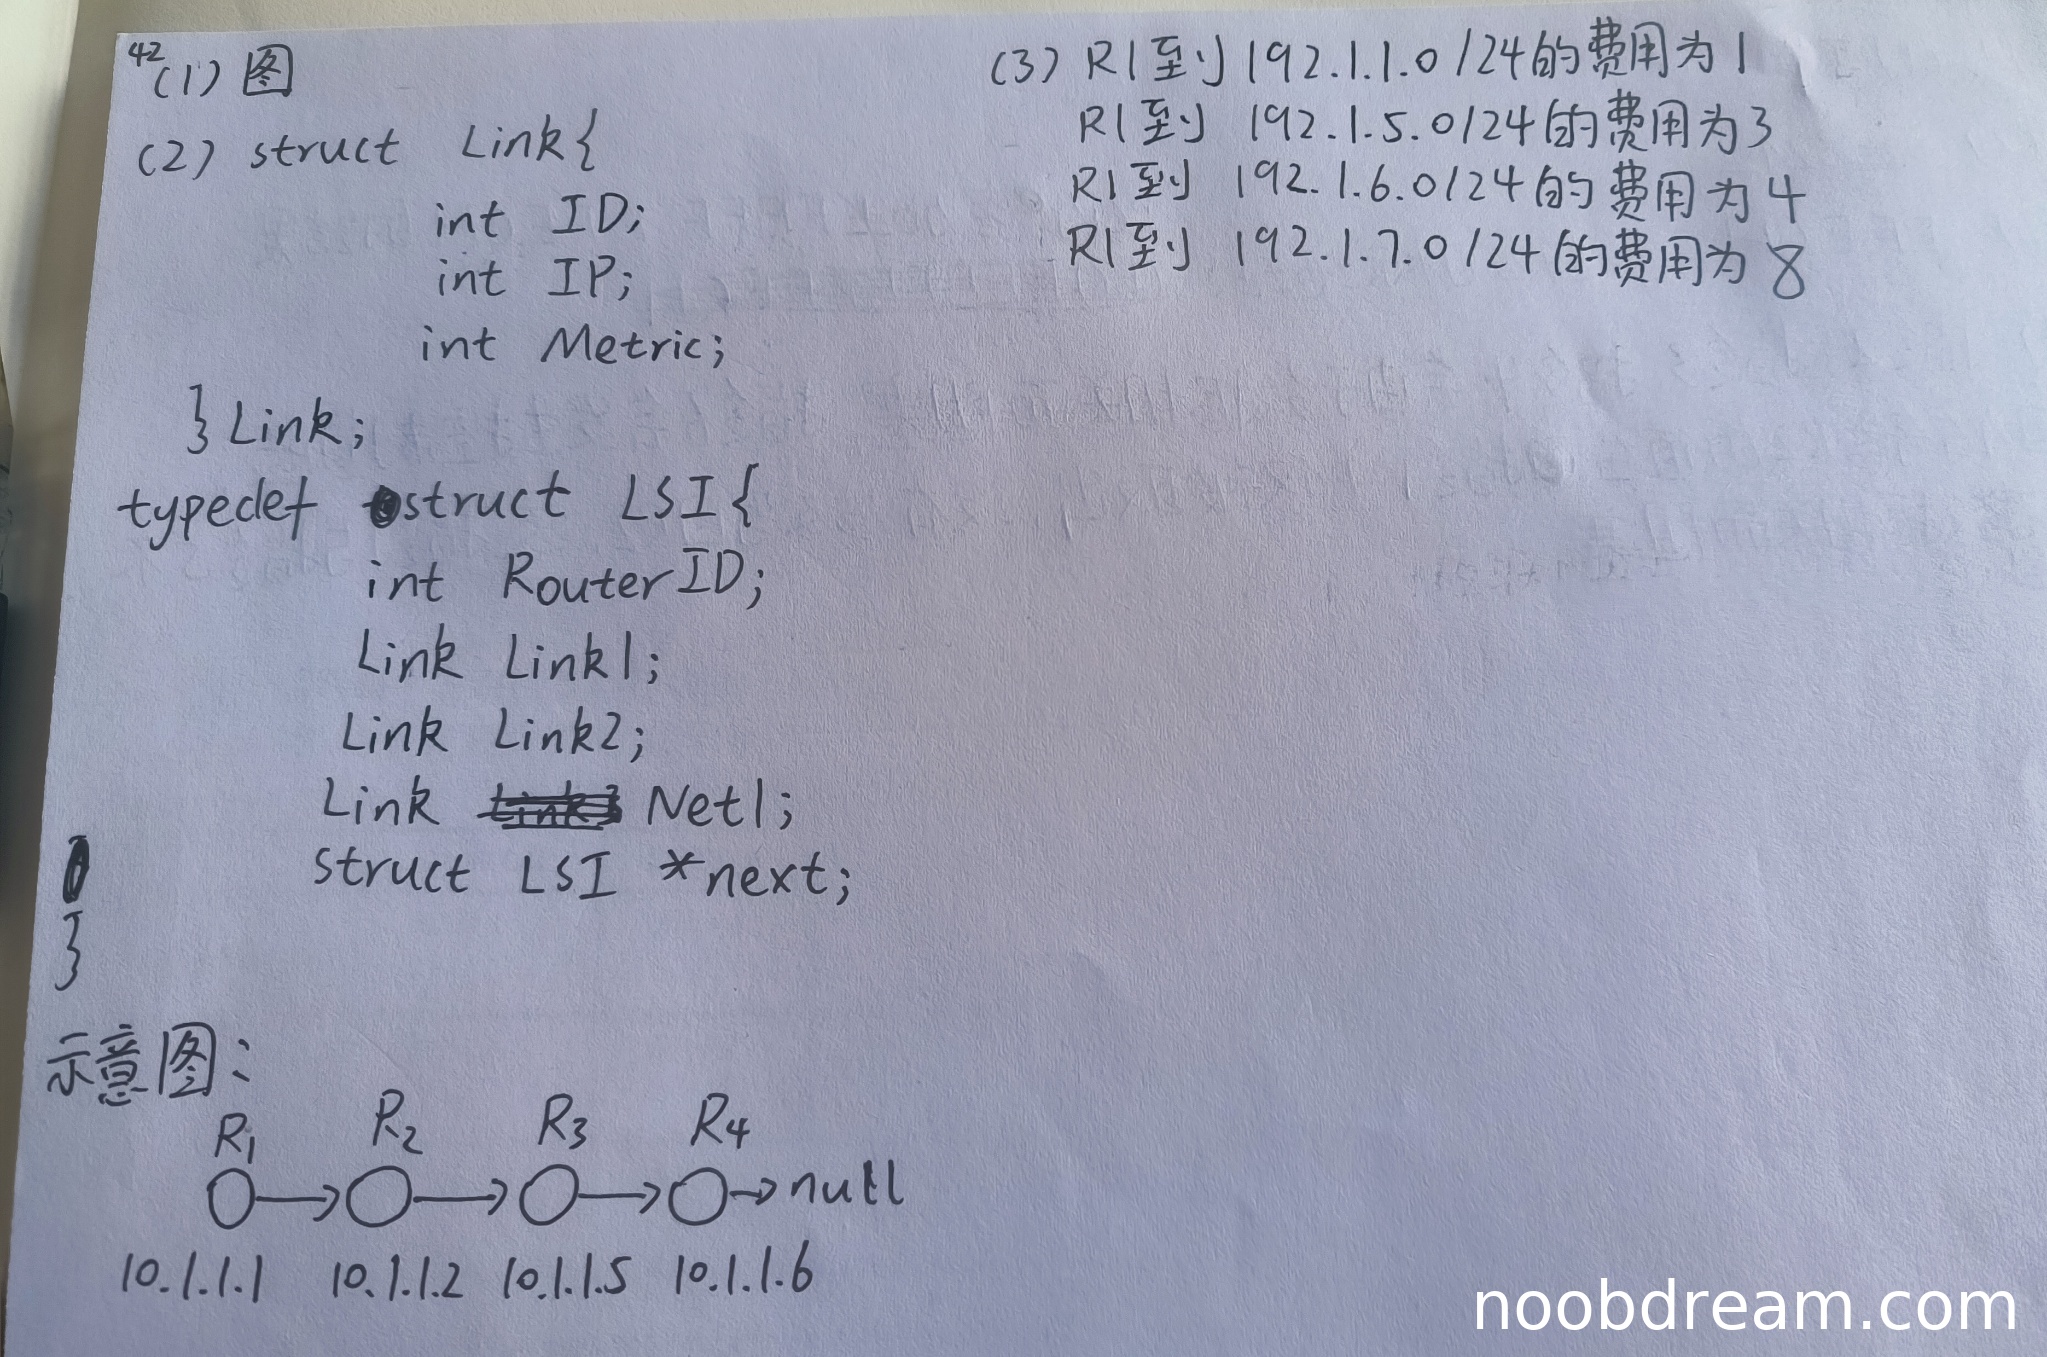 42
(1) 图
(2) struct Link{
int ID;
int IP;
int Metric;
} Link;
typedef struct LSI{
int RouterID;
Link Link1;
Link Link2;
Link Net1;
struct LSI *next;
}
示意图:
R1 R2 R3 R4
null
10.1.1.1 10.1.1.2 10.1.1.5 10.1.1.6
(3) R1到192.1.1.0/24的费用为1
R1到 192.1.5.0/24的费用为3
R1到 192.1.6.0/24的费用为4
R1到 192.1.7.0/24的费用为8
noobdream.com